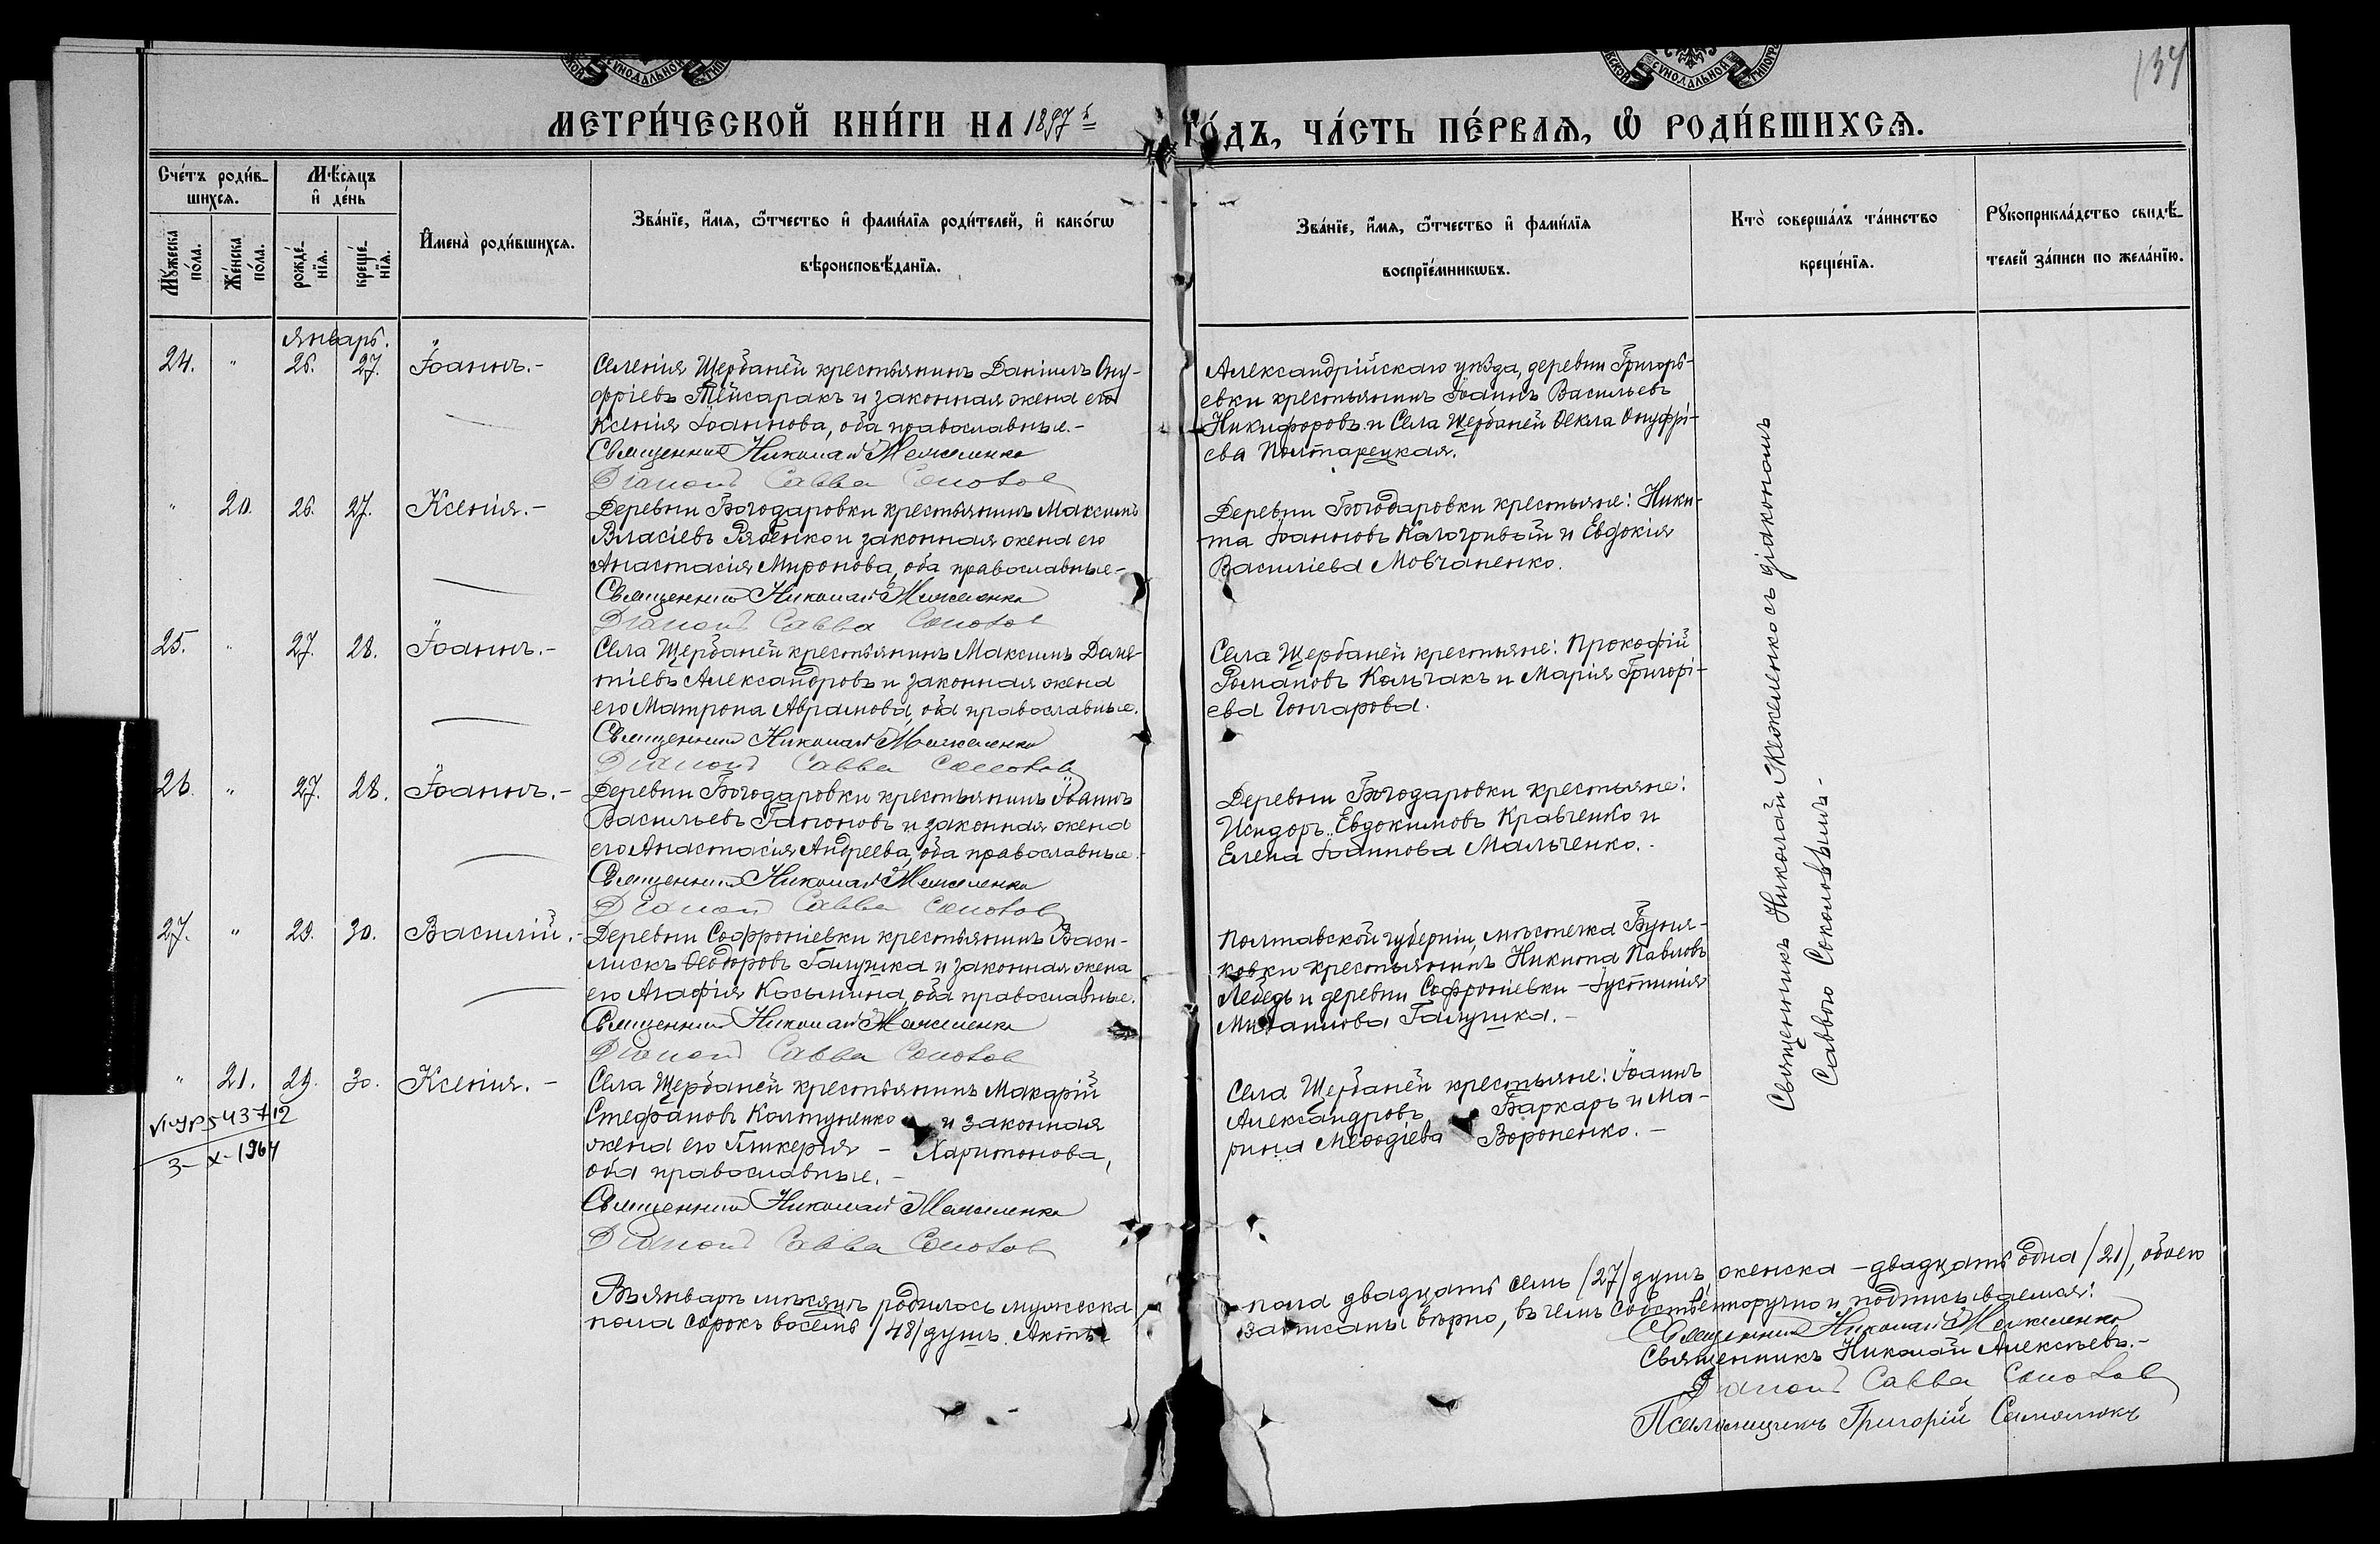 134
МЕТРИ́ЧЕСКОЙ КНИ́ГИ НА 1897 й
ГО́ДЪ, ЧА́СТЬ ПЕ́РВАѦ, Ѡ РОДИ́ВШИХСѦ.
Сче́тъ роди́в-
шихсѧ.
Мꙋжеска
по́ла.
Же́нска
по́ла.
Мѣ́сѧцъ
и де́нь
рожде́-
нїѧ.
креще́-
нїѧ.
Имена̀ роди́вшихсѧ.
Зва́нїе, и́мѧ, ѻ́тчество и фами́лїѧ роди́телей, и како́гѡ
вѣроисповѣ́данїѧ.
Зва́нїе, и́мѧ, ѻ́тчество и фами́лїѧ
воспрїе́мникѡвъ.
Кто̀ соверша́лъ та́инство
креще́нїѧ.
Рꙋкоприкла́дство свидѣ́-
телей за́писи по жела́нїю.
Январь.
24. " 26. 27. Іоаннъ.-
Селенія Щербаней крестьянинъ Даніилъ Ону-
фріевъ Пейсаракъ и законная жена его
Ксенія Іоаннова, оба православные.-
Священник Николай Можеленко
Диакон Савва Соколов
Александрійскаго уѣзда, деревни Григорь-
евки крестьянинъ Іоаннъ Васильевъ
Никифоровъ и Села Щербаней Ѳекла Онуфрі-
ева Полтарецкая.
" 20. 26. 27. Ксенія.-
Деревни Богодаровки крестьянинъ Максимъ
Власіевъ Рябенко и законная жена его
Анастасія Миронова, оба православные-
Священник Николай Можеленко
Диакон Савва Соколов
Деревни Богодаровки крестьяне: Ники-
та Іоанновъ Калогривый и Евдокія
Василіева Мовчаненко.
25. " 27. 28. Іоаннъ.-
Села Щербаней крестьянинъ Максимъ Доме-
тіевъ Александровъ и законная жена
его Матрона Авраамова, оба православные.
Священник Николай Можеленко
Диакон Савва Соколов
Села Щербаней крестьяне: Прокофій
Романовъ Кольчакъ и Марія Григорі-
ева Гончарова.
26. " 27. 28. Іоаннъ.-
Деревни Богодаровки крестьянинъ Іоаннъ
Васильевъ Гапоновъ и законная жена
его Анастасія Андреева, оба православные.
Священник Николай Можеленко
Диакон Савва Соколов
Деревни Богодаровки крестьяне:
Исидоръ Евдокимовъ Кравченко и
Елена Іоаннова Мальченко.-
27. " 29. 30. Василій.-
Деревни Софроніевки крестьянинъ Васи-
лискъ Ѳеодоровъ Галушка и законная жена
его Агафія Косьмина, оба православные.
Священник Николай Можеленко
Диакон Савва Соколов
Полтавской губерніи, мѣстечка Буня-
ковки крестьянинъ Никита Павловъ
Лебедь и деревни Софроніевки - Іустинія
Михаилова Галушка.-
" 21. 29. 30. Ксенія.-
Села Щербаней крестьянинъ Макарій
Стефановъ Колтуненко и законная
жена его Гликерія - Харитонова,
оба православные.-
Священник Николай Можеленко
Диакон Савва Соколов
Села Щербаней крестьяне: Іоаннъ
Александровъ Баркарь и Ма-
рина Меѳодіева Вороненко.-
543712
3-X-1964
Священникъ Николай Можеленко съ діакономъ
Саввою Соколовымъ.-
Въ январѣ мѣсяцѣ родилось мужеска
пола двадцать семь /27/ душъ, женска - двадцать одна /21/, обоего
пола сорокъ восемь /48/ душъ. Акты
записаны вѣрно, въ чемъ собственноручно и подписываемся:
Священник Николай Можеленко
Священникъ Николай Алексѣевъ.-
Диакон Савва Соколов
Псаломщикъ Григорій Самолюкъ